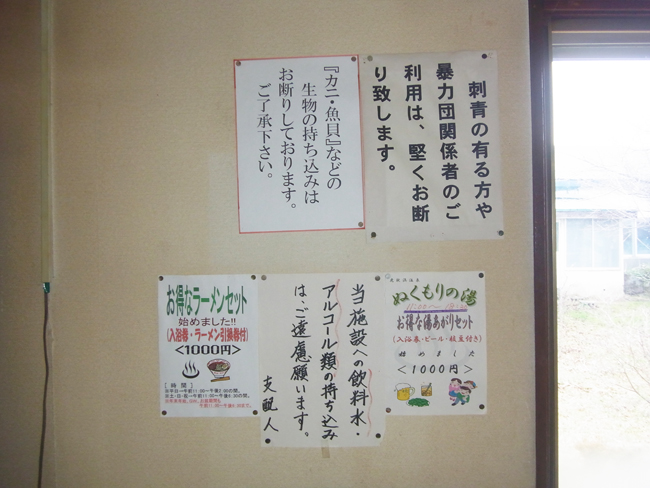 刺青の有る方や
暴力団関係者のご
利用は、堅くお断
り致します。
『カニ・魚貝』などの
生物の持ち込みは
お断りしております。
ご了承下さい。
お得なラーメンセット
始めました!!
(入浴券・ラーメン引換券付)
<1000円>
[時間]
当施設への飲料水・
アルコール類の持ち込み
は、ご遠慮願います。
支配人
ぬくもりの湯
お得な湯あがりセット
(入浴券・ビール・枝豆付き)
始めました
<1000円>